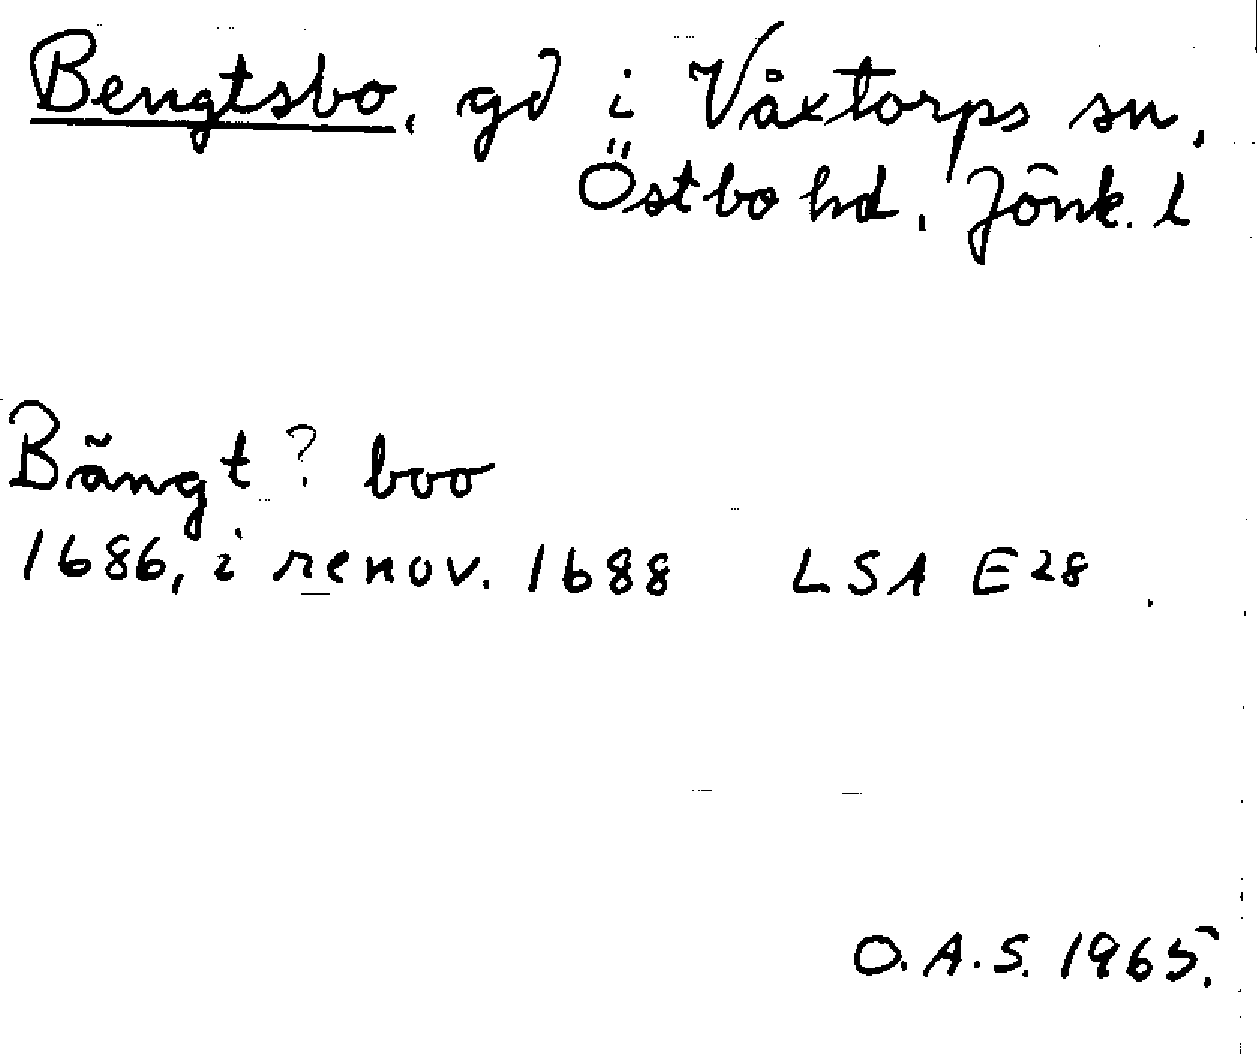 Bengtsbo, gd i Våxtorps sn,
Östbo hd, Jönk. l
Bängt? boo
1686, i renov. 1688 LSA E28
O.A.S. 1965.